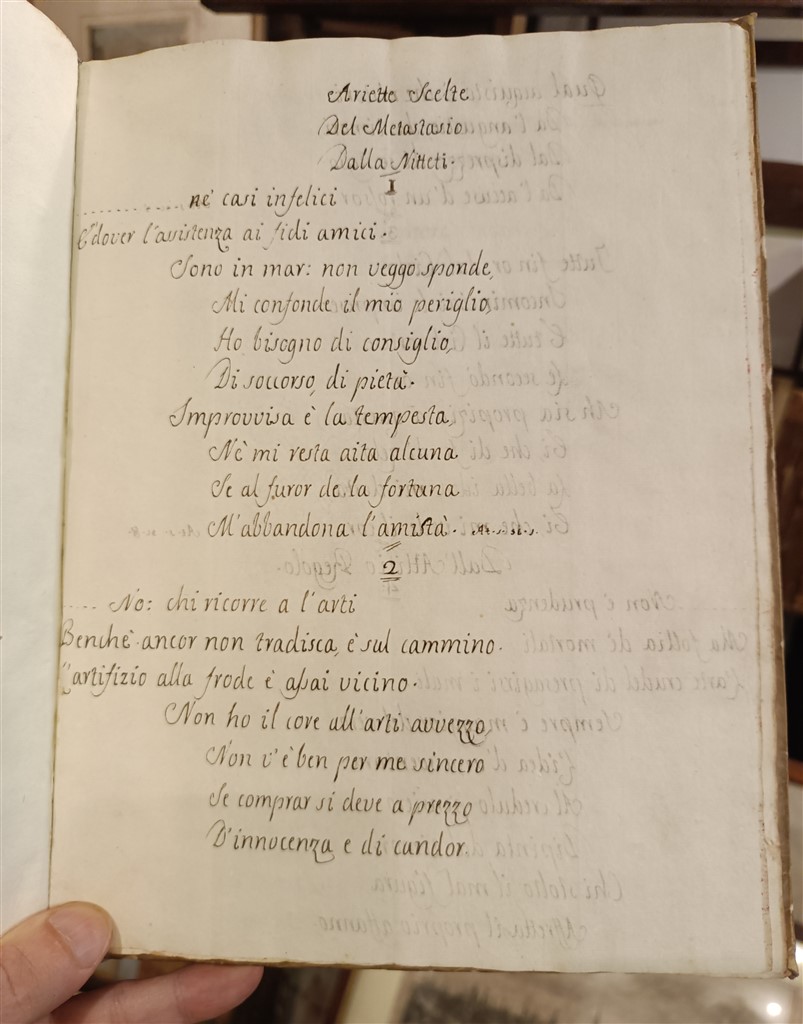 Ariette Scelte
Del Metastasio
Dalla Nitteti.
1
......... ne' casi infelici
E' dover l'assistenza ai fidi amici.
Sono in mar: non veggo sponde,
Mi confonde il mio periglio,
Ho bisogno di consiglio,
Di soccorso, di pietà.
Improvvisa è la tempesta,
Nè mi resta aita alcuna
Se al furor de la fortuna
M'abbandona l'amistà.
2
.... No: chi ricorre a l'arti
Benchè ancor non tradisca, è sul cammino.
L'artifizio alla frode è assai vicino.
Non ho il core all'arti avvezzo,
Non v'è ben per me sincero
Se comprar si deve a prezzo
D'innocenza e di candor.